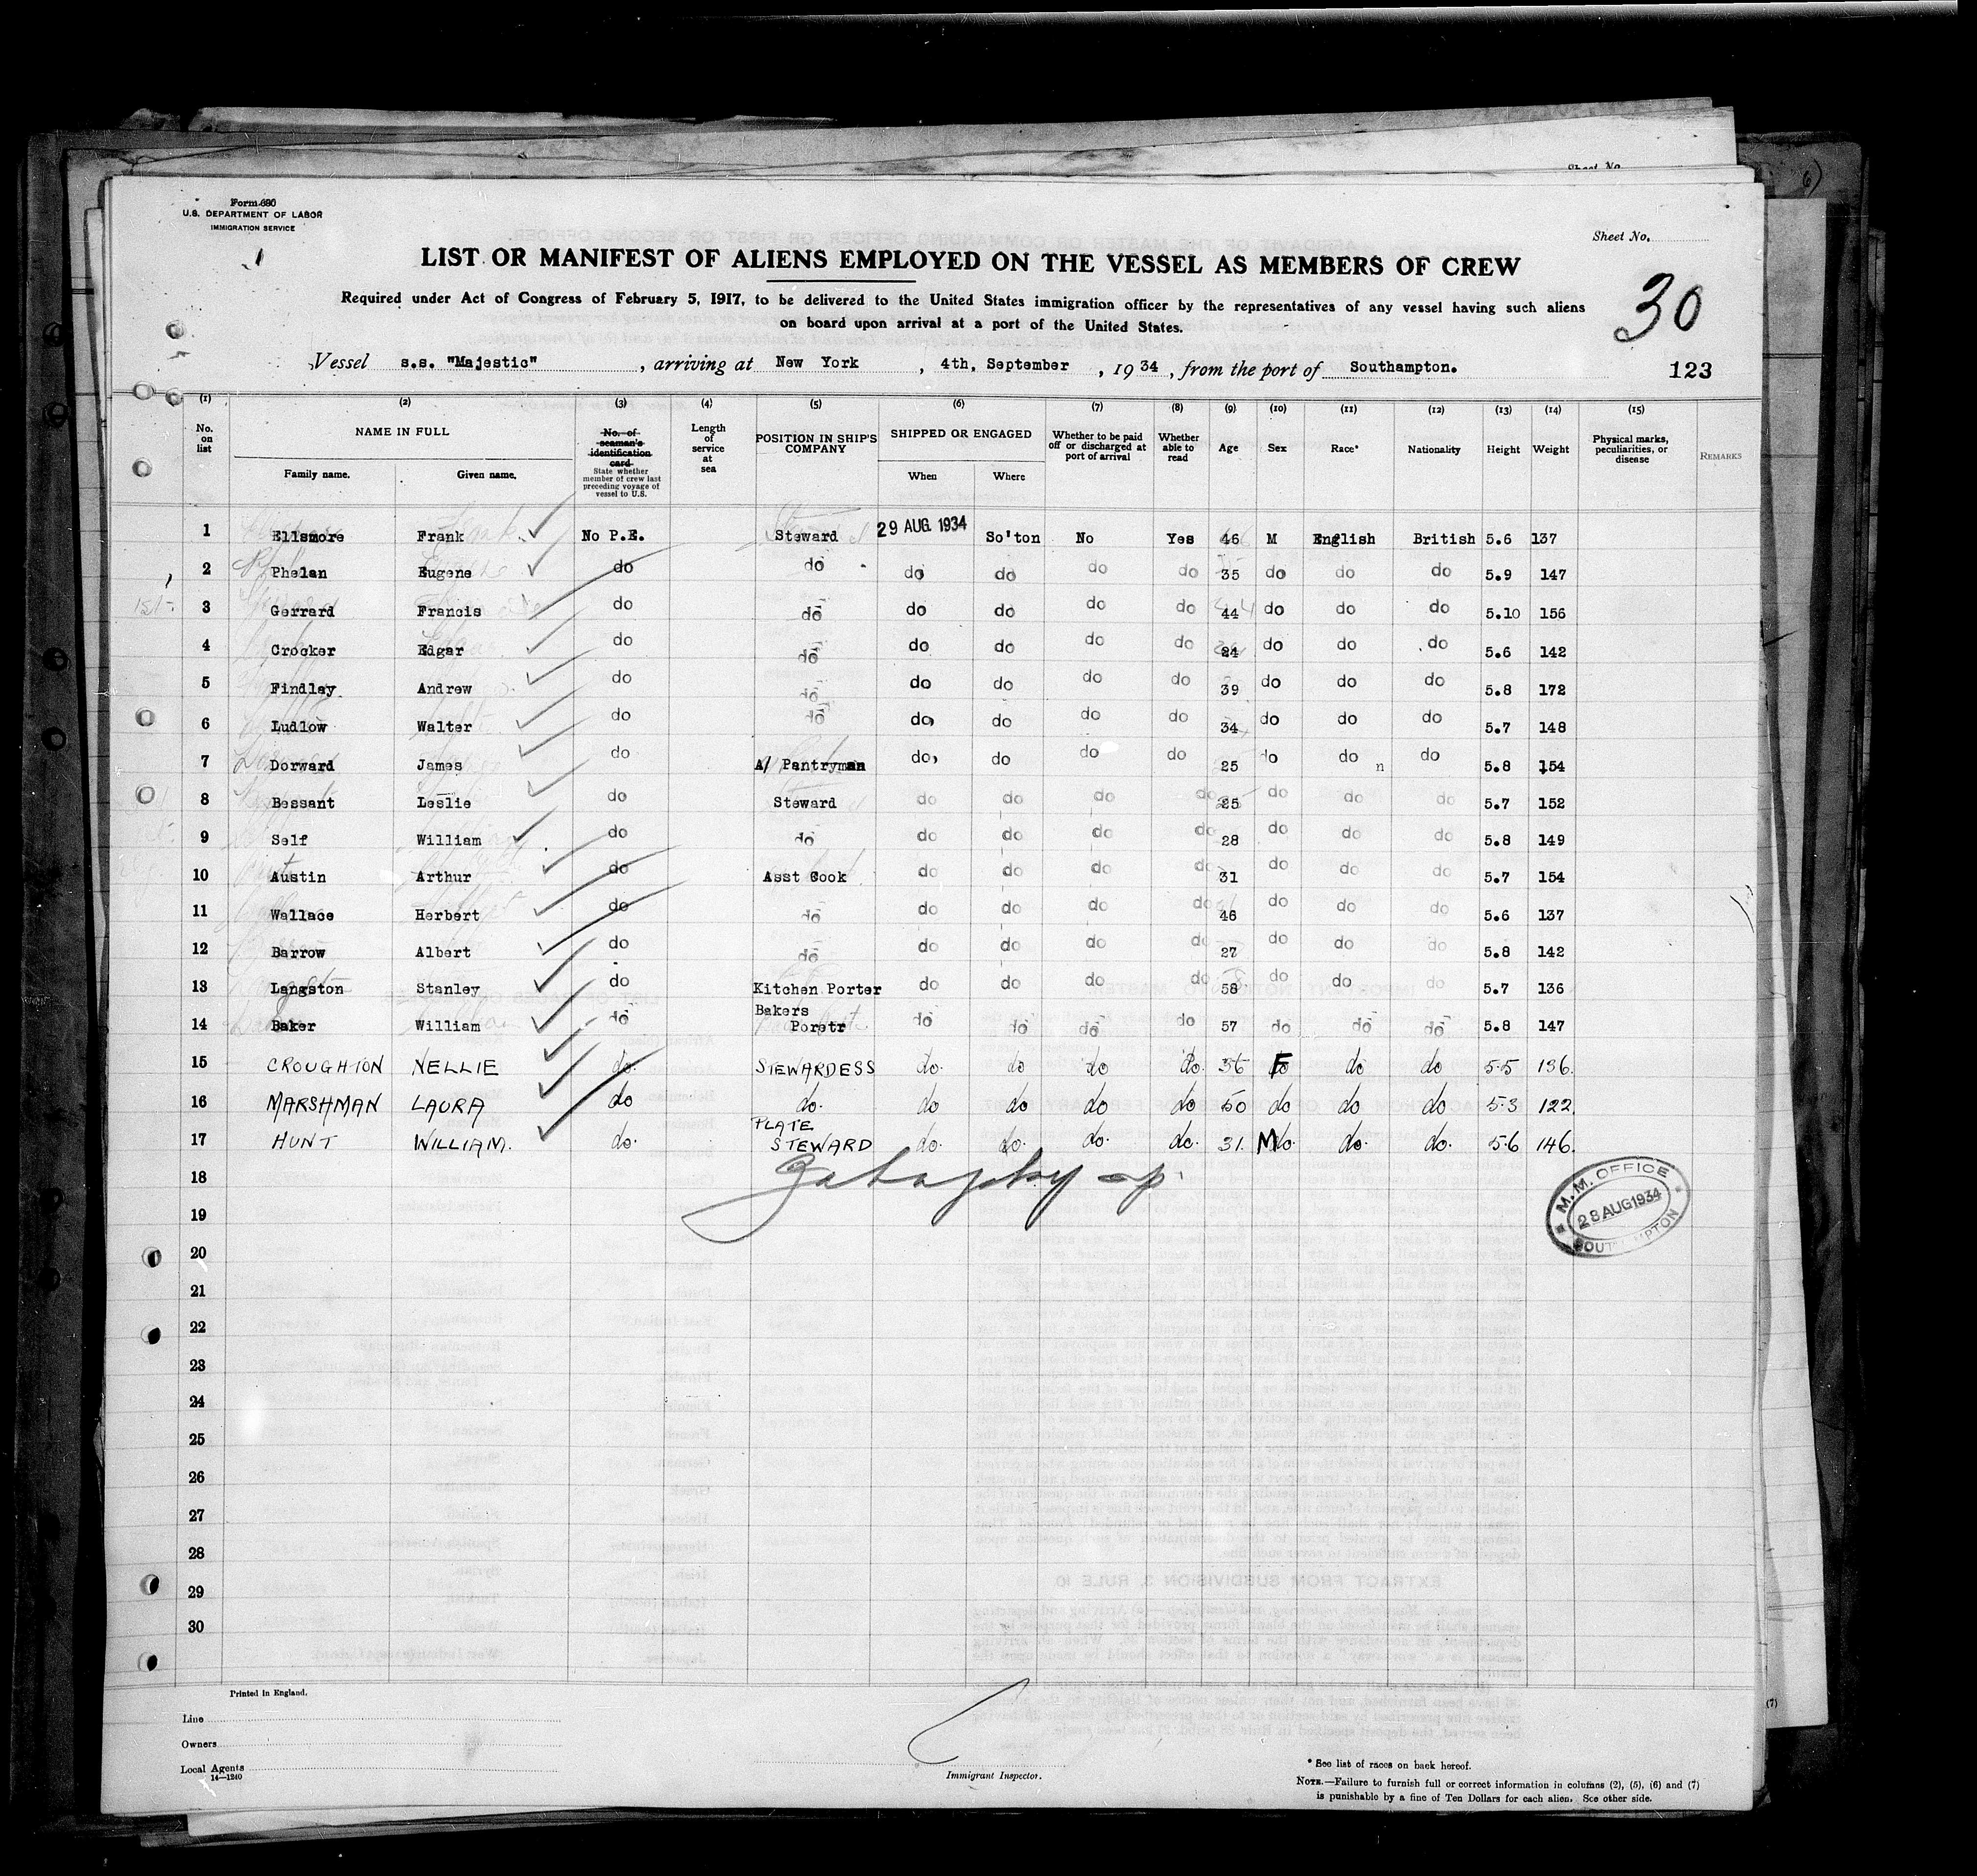 Sheet No.
6)
Form 680
U.S. DEPARTMENT OF LABOR
IMMIGRATION SERVICE
Sheet No.
LIST OR MANIFEST OF ALIENS EMPLOYED ON THE VESSEL AS MEMBERS OF CREW
Required under Act of Congress of February 5, 1917, to be delivered to the United States immigration officer by the representatives of any vessel having such aliens
on board upon arrival at a port of the United States.
30
Vessel s.s. "Majestic", arriving at New York, 4th, September, 1934, from the port of Southampton.
123
(1) (2) (3) (4) (5) (6) (7) (8) (9) (10) (11) (12) (13) (14) (15)
No. on list NAME IN FULL Family name. Given name. No. of seaman's identification card State whether member of crew last preceding voyage of vessel to U.S. Length of service at sea POSITION IN SHIP'S COMPANY SHIPPED OR ENGAGED When Where Whether to be paid off or discharged at port of arrival Whether able to read Age Sex Race* Nationality Height Weight Physical marks, peculiarities, or disease REMARKS
1 Ellsmore Frank No P.E. Steward 29 AUG. 1934 So'ton No Yes 46 M English British 5.6 137
2 Phelan Eugene do do do do do do 35 do do do 5.9 147
3 Gerrard Francis do do do do do do 44 do do do 5.10 156
4 Crocker Edgar do do do do do do 24 do do do 5.6 142
5 Findlay Andrew do do do do do do 39 do do do 5.8 172
6 Ludlow Walter do do do do do do 34 do do do 5.7 148
7 Dorward James do A/ Pantryman do do do do 25 do do n do 5.8 154
8 Bessant Leslie do Steward do do do do 25 do do do 5.7 152
9 Self William do do do do do do 28 do do do 5.8 149
10 Austin Arthur do Asst Cook do do do do 31 do do do 5.7 154
11 Wallace Herbert do do do do do do 46 do do do 5.6 137
12 Barrow Albert do do do do do do 27 do do do 5.8 142
13 Langston Stanley do Kitchen Porter do do do do 58 do do do 5.7 136
14 Baker William do Bakers Poretr do do do do 57 do do do 5.8 147
15 CROUGHTON NELLIE do. STEWARDESS do. do do do. 36 F do do 5.5 136.
16 MARSHMAN LAURA do do. do do do do 50 do do do 5.3 122.
17 HUNT WILLIAM. do. PLATE STEWARD do. do. do. do. 31. M do. do. do. 5.6 146.
18
19
M.M. OFFICE
28 AUG 1934
SOUTHAMPTON
20
21
22
23
24
25
26
27
28
29
30
Printed in England.
Line
Owners
Local Agents
14—1240
Immigrant Inspector.
* See list of races on back hereof.
NOTE.—Failure to furnish full or correct information in columns (2), (5), (6) and (7)
is punishable by a fine of Ten Dollars for each alien. See other side.
(7)